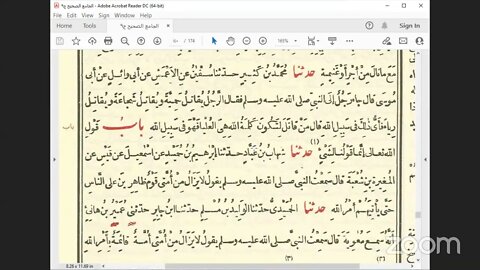 الجامع الصحيح ج٩ - Adobe Acrobat Reader DC (64-bit)
File Edit View Sign Window Help
Home Tools الجامع الصحيح ج٩ × Sign In
/ 174 165%
مع ما نال من أجر أو غنيمة حدثنا محمد بن كثير حدثنا سفيان عن الأعمش عن أبي وائل عن أبي
موسى قال جاء رجل إلى النبي صلى الله عليه وسلم فقال الرجل يقاتل حمية ويقاتل شجاعة ويقاتل
رياء فأي ذلك في سبيل الله قال من قاتل لتكون كلمة الله هي العليا فهو في سبيل الله باب قول
باب
الله تعالى إنما قولنا لشيء (١) حدثنا شهاب بن عباد حدثنا إبرهيم بن حميد عن إسمعيل عن قيس عن
المغيرة بن شعبة قال سمعت النبي صلى الله عليه وسلم يقول لا يزال من أمتي قوم ظاهرين على الناس
حتى يأتيهم أمر الله حدثنا الحميدي حدثنا الوليد بن مسلم حدثنا ابن جابر حدثني عمير بن هانئ
أنه سمع معوية قال سمعت النبي صلى الله عليه وسلم يقول لا يزال من أمتي أمة قائمة بأمر الله
(٢) (٣)
8.26 x 11.69 in
zoom